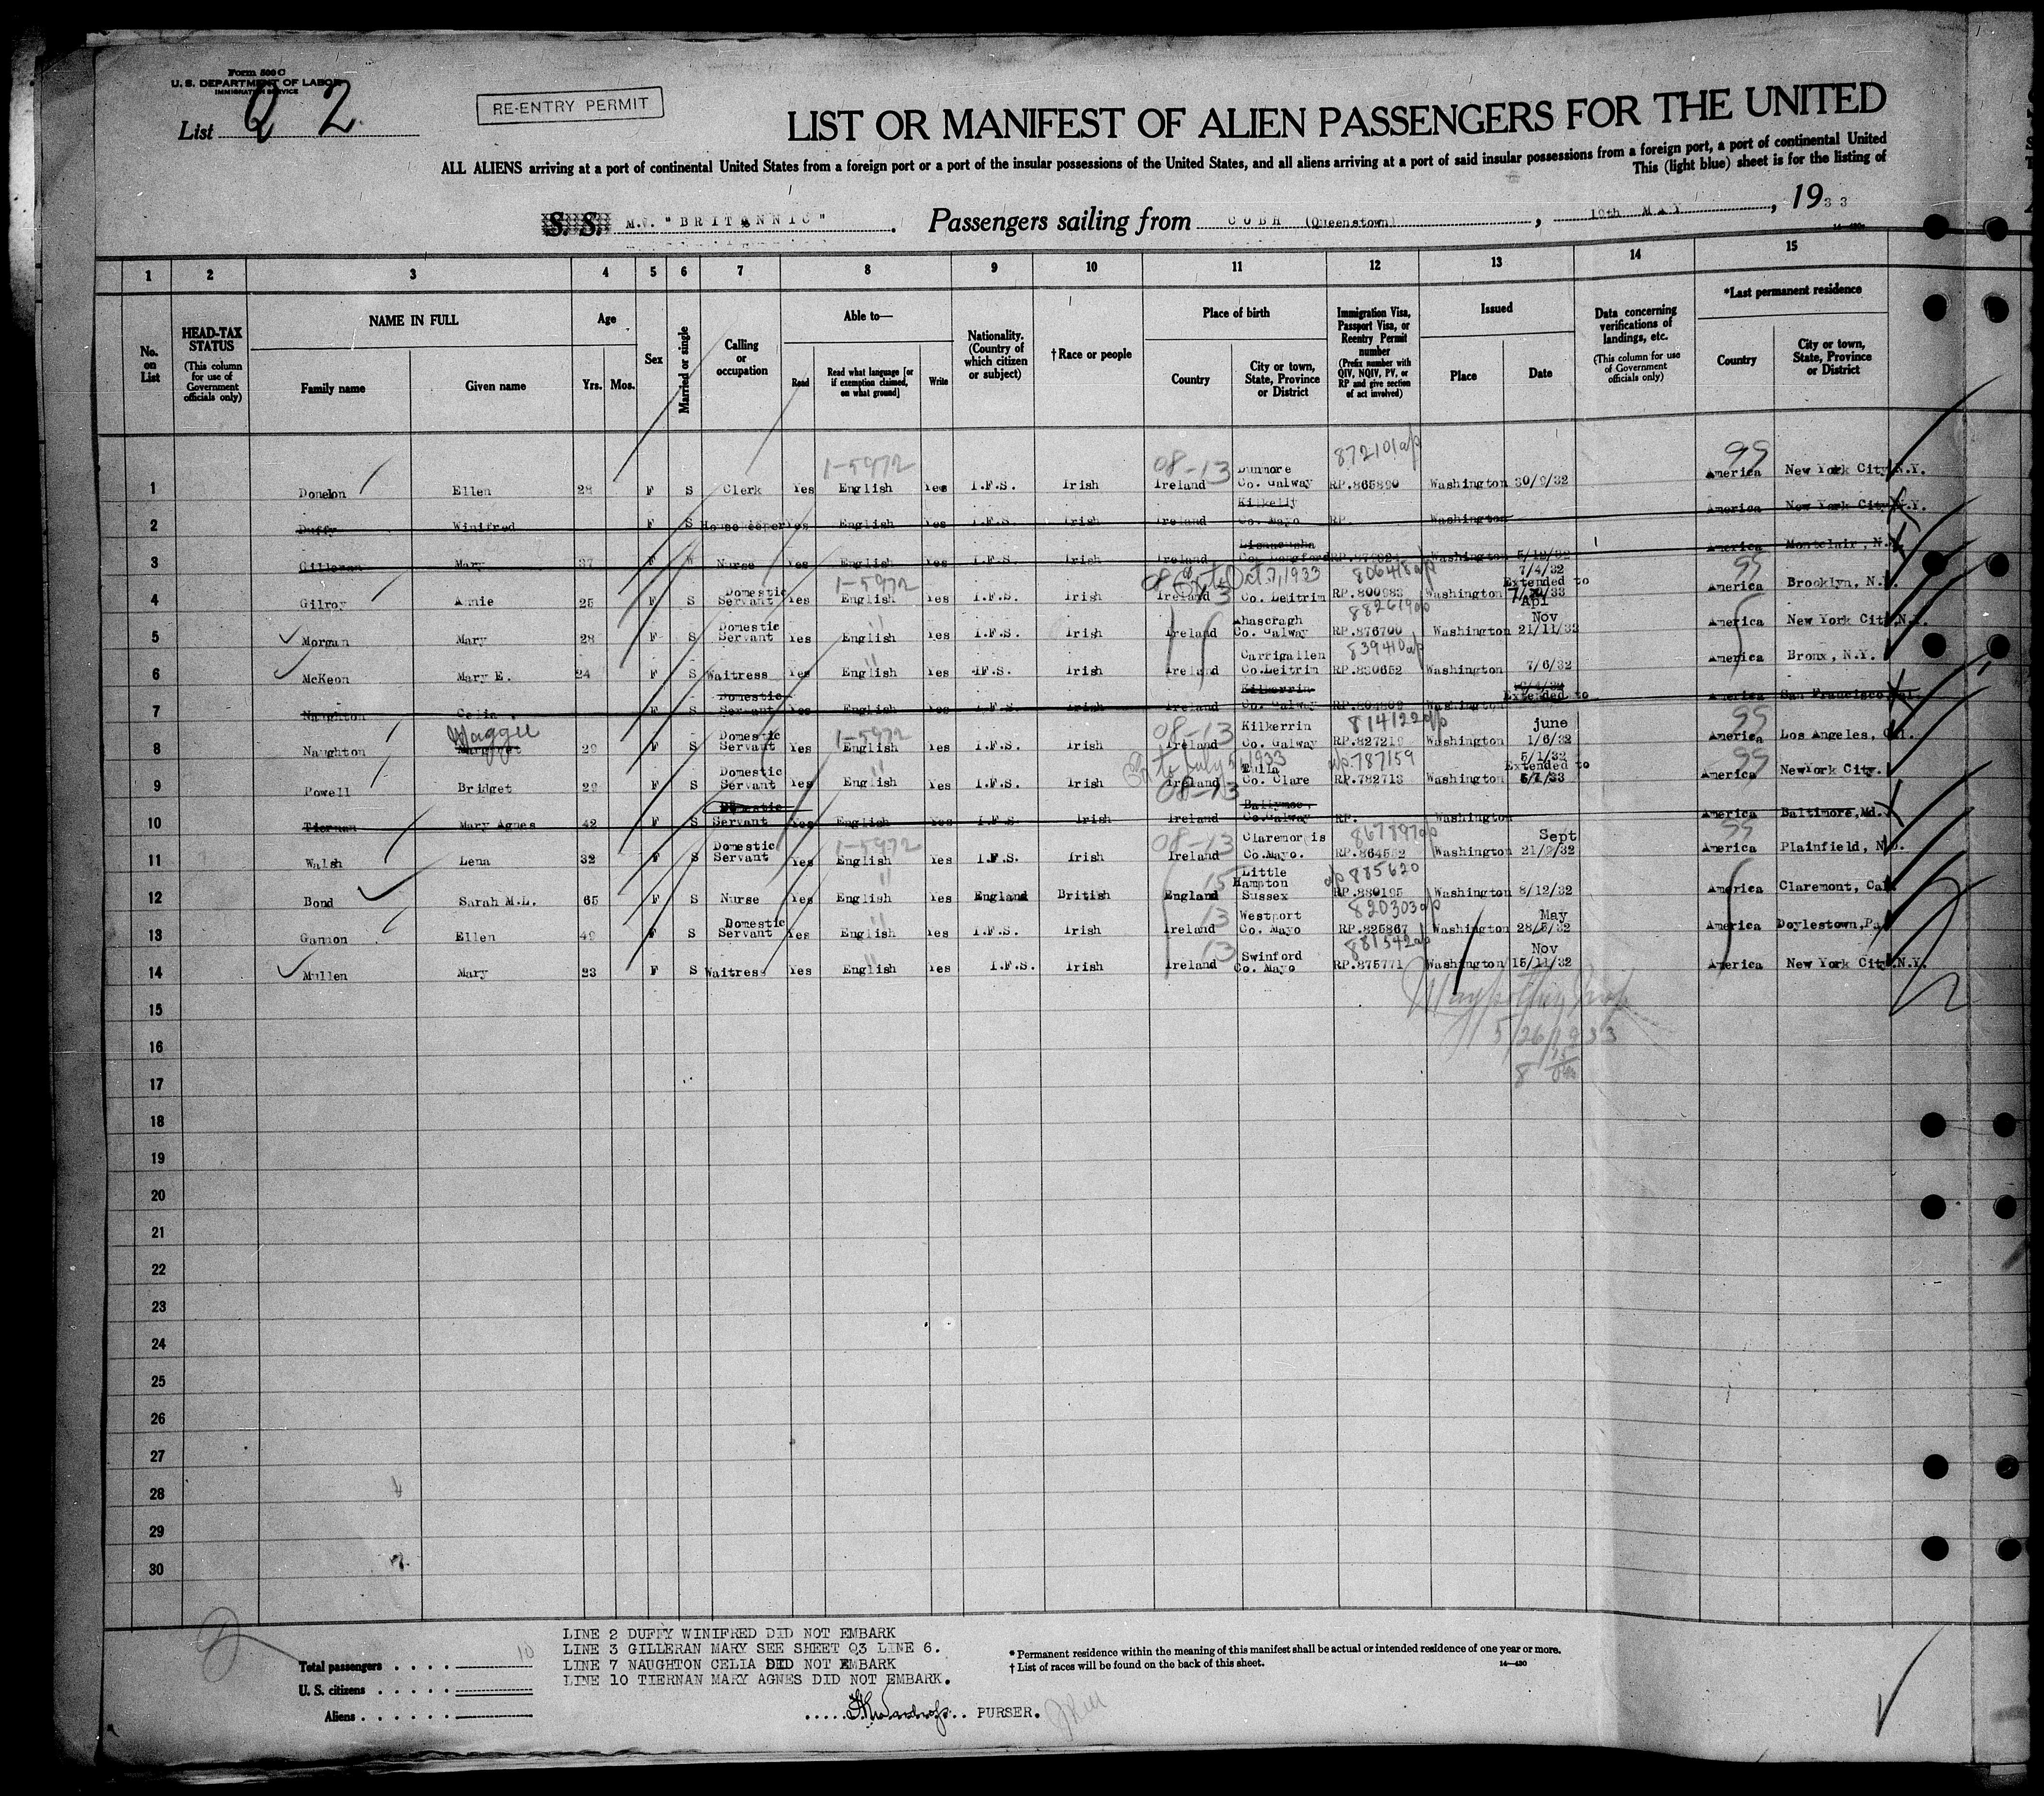 Form 500 C
U. S. DEPARTMENT OF LABOR
IMMIGRATION SERVICE
List Q 2
RE-ENTRY PERMIT
LIST OR MANIFEST OF ALIEN PASSENGERS FOR THE UNITED
ALL ALIENS arriving at a port of continental United States from a foreign port or a port of the insular possessions of the United States, and all aliens arriving at a port of said insular possessions from a foreign port, a port of continental United
This (light blue) sheet is for the listing of
S. S. M.V. "BRITANNIC". Passengers sailing from COBH (Queenstown), 19th MAY, 1933
1 2 3 4 5 6 7 8 9 10 11 12 13 14 15
No. on List
HEAD-TAX STATUS (This column for use of Government officials only)
NAME IN FULL Family name Given name
Age Yrs. Mos.
Sex
Married or single
Calling or occupation
Able to— Read Read what language [or if exemption claimed, on what ground] Write
Nationality. (Country of which citizen or subject)
† Race or people
Place of birth Country City or town, State, Province or District
Immigration Visa, Passport Visa, or Reentry Permit number (Prefix number with QIV, NQIV, PV, or RP and give section of act involved)
Issued Place Date
Data concerning verifications of landings, etc. (This column for use of Government officials only)
*Last permanent residence Country City or town, State, Province or District
1-5972 08-13 872101 99
1 Donelon Ellen 28 F S Clerk Yes English Yes I.F.S. Irish Ireland Dunmore Co. Galway RP.865890 Washington 30/9/32 America New York City N.Y.
2 Duffy Winifred F S Housekeeper Yes English Yes I.F.S. Irish Ireland Kilkelly Co. Mayo RP. Washington America New York City N.Y.
3 Gilleran Mary 37 F W Nurse Yes English Yes I.F.S. Irish Ireland Co. Longford Washington 5/12/32 America Montclair, N.J.
1-5972 Oct. 7, 1933 99
4 Gilroy Annie 25 F S Domestic Servant Yes English Yes I.F.S. Irish Ireland Co. Leitrim RP.800983 Washington 7/4/32 Extended to America Brooklyn, N.Y.
5 Morgan Mary 28 F S Domestic Servant Yes English Yes I.F.S. Irish Ireland Ahascragh Co. Galway RP.876700 Washington Nov 21/11/32 America New York City N.Y.
839410
6 McKeon Mary E. 24 F S Waitress Yes English Yes I.F.S. Irish Ireland Carrigallen Co.Leitrim RP.830652 Washington 7/6/32 America Bronx, N.Y.
7 Naughton Celia F S Domestic Servant Yes English Yes I.F.S. Irish Ireland Kilkerrin Co. Galway Washington Extended to America San Francisco Cal.
Maggie 1-5972 08-13 814122 99
8 Naughton Margaret 29 F S Domestic Servant Yes English Yes I.F.S. Irish Ireland Kilkerrin Co. Galway RP.827219 Washington june 1/6/32 America Los Angeles, Cal.
July 5, 1933 787159 99
9 Powell Bridget 29 F S Domestic Servant Yes English Yes I.F.S. Irish Ireland Tulla Co. Clare RP.782713 Washington 5/1/32 Extended to America NewYork City.
08-13
10 Tiernan Mary Agnes 42 F S Domestic Servant Yes English Yes I.F.S. Irish Ireland Ballymoe, Co.Galway RP. Washington America Baltimore, Md.
1-5972 08-13 867897 99
11 Walsh Lena 32 F S Domestic Servant Yes English Yes I.F.S. Irish Ireland Claremorris Co.Mayo. RP.864552 Washington Sept 21/9/32 America Plainfield, N.J.
15 885620
12 Bond Sarah M.L. 65 F S Nurse Yes English Yes England British England Little Hampton Sussex RP.880195 Washington 8/12/32 America Claremont, Cal.
13 820303
13 Gannon Ellen 49 F S Domestic Servant Yes English Yes I.F.S. Irish Ireland Westport Co. Mayo RP.825867 Washington May 28/5/32 America Doylestown,Pa.
13 881542
14 Mullen Mary 23 F S Waitress Yes English Yes I.F.S. Irish Ireland Swinford Co. Mayo RP.875771 Washington Nov 15/11/32 America New York City N.Y.
15
5/26/1933
16
17
18
19
20
21
22
23
24
25
26
27
28
29
30
LINE 2 DUFFY WINIFRED DID NOT EMBARK
LINE 3 GILLERAN MARY SEE SHEET Q3 LINE 6.
LINE 7 NAUGHTON CELIA DID NOT EMBARK
LINE 10 TIERNAN MARY AGNES DID NOT EMBARK.
PURSER.
Total passengers 10
U. S. citizens
Aliens
* Permanent residence within the meaning of this manifest shall be actual or intended residence of one year or more.
† List of races will be found on the back of this sheet.
14—430